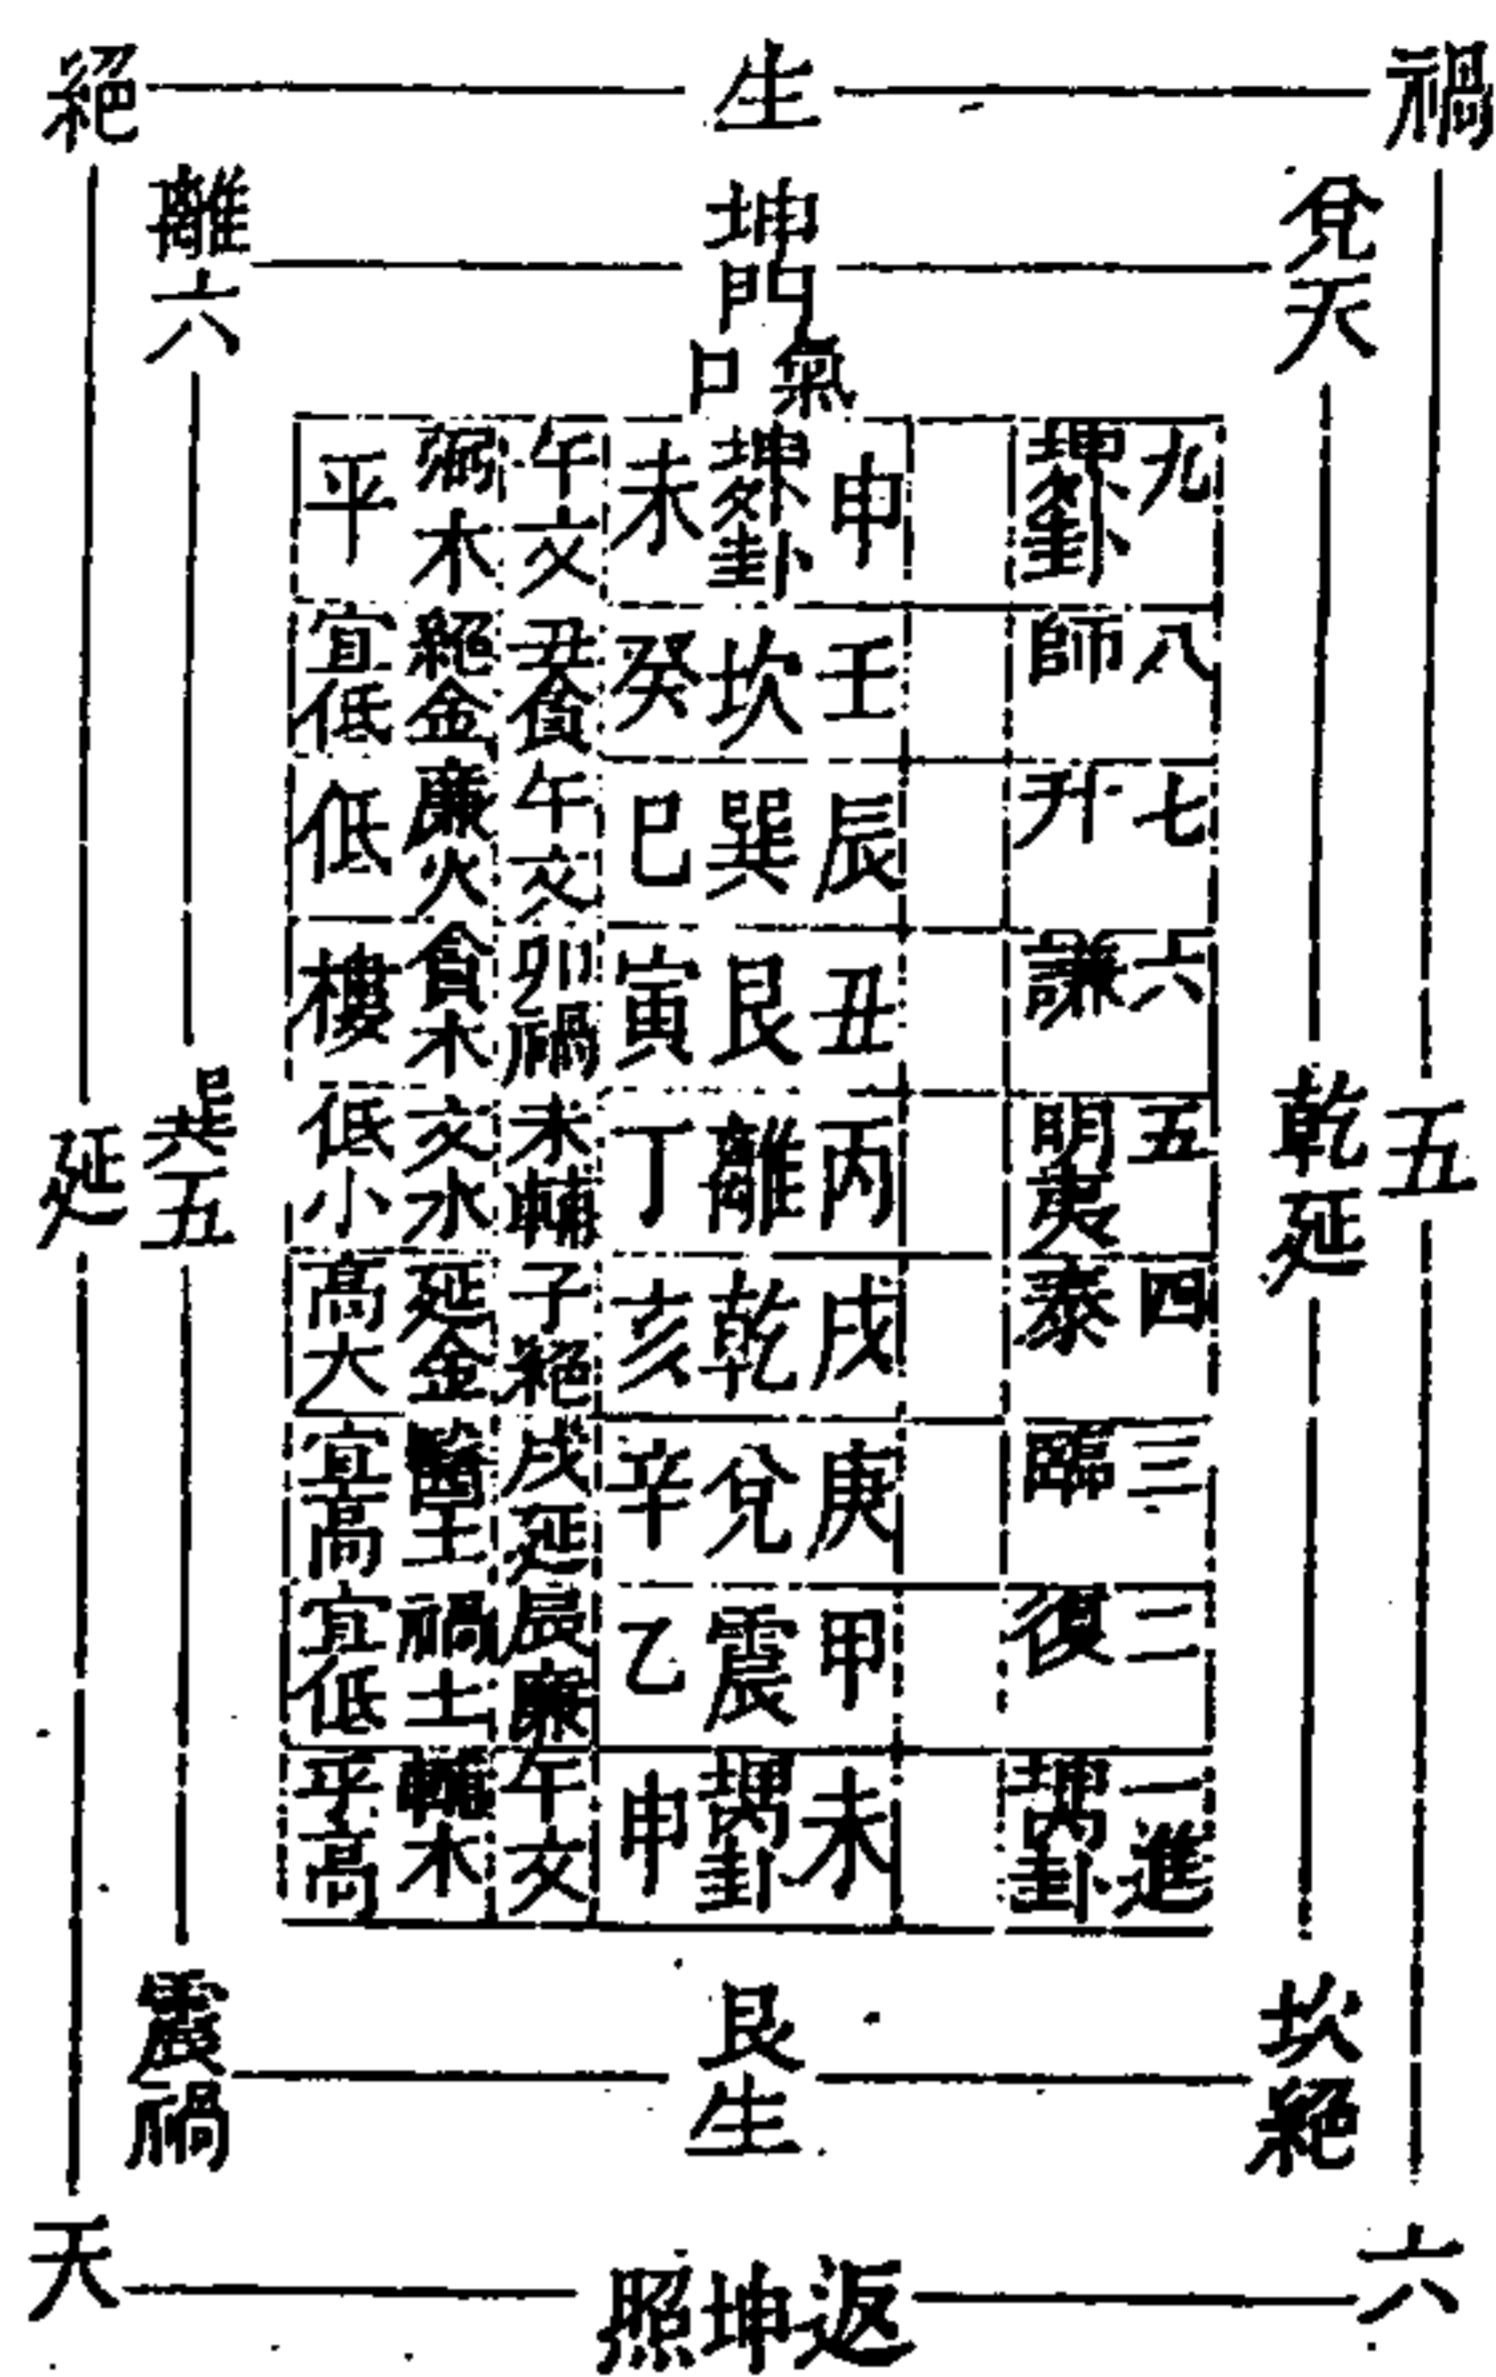 禍 生 絕
兌天 坤門 離六
氣口
九 坤外卦 申 坤外卦 未 午文 弼木 平
八 師 壬 坎 癸 丑貪 絕金 宜低
七 升 辰 巽 巳 午文 廉火 低
六 謙 丑 艮 寅 卯禍 貪木 樓
五 明夷 丙 離 丁 未輔 文水 低小
四 泰 戌 乾 亥 子絕 延金 高大
三 臨 庚 兌 辛 戌延 宜高
二 復 甲 震 乙 辰廉 禍土 宜低
一進 坤內卦 未 坤內卦 申 午文 輔木 平高
五 乾延 巽五 延
坎絕 艮生 震禍
六 返坤照 天